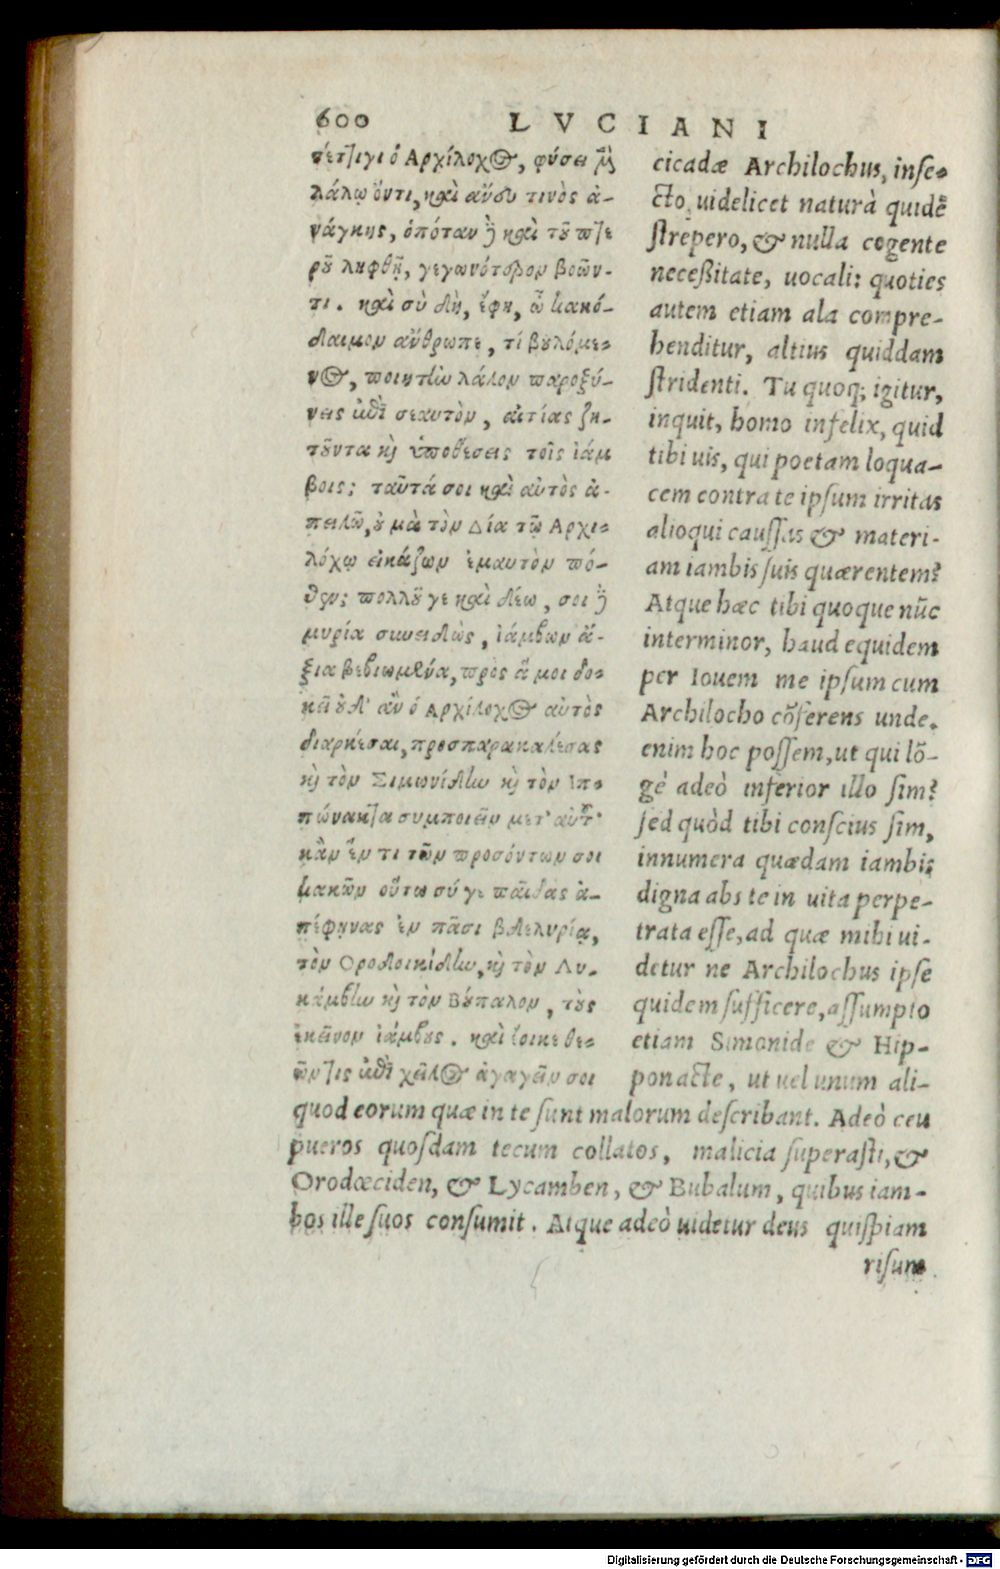 600 LVCIANI
τέτ]ιγι ὁ Αρχίλοχος, φύσει μὲν
λάλῳ ὄντι, καὶ ἄνευ τινὸς ἀ-
νάγκης, ὁπόταν δὲ καὶ τοῦ πτε
ροῦ ληφθῇ, γεγωνότερον βοῶν-
τι. καὶ σὺ δὴ, ἔφη, ὦ κακό-
δαιμον ἄνθρωπε, τί βουλόμε-
νος, ποιητὴν λάλον παροξύ-
νεις ἐπὶ σεαυτὸν, αἰτίας ζη-
τοῦντα καὶ ὑποθέσεις τοῖς ἰάμ
βοις; ταῦτά σοι καὶ αὐτὸς ἀ-
πειλῶ, οὐ μὰ τὸν Δία τῷ Αρχι-
λόχῳ εἰκάζων ἐμαυτὸν πό-
θεν; πολλοῦ γε καὶ δέω, σοι δὲ
μυρία συνειδὼς, ἰάμβων ἄ-
ξια βεβιωμένα, πρὸς ἅ μοι δο-
κεῖ οὐδ' ἂν ὁ Αρχίλοχος αὐτὸς
διαρκέσαι, προσπαρακαλέσας
καὶ τὸν Σιμωνίδην καὶ τὸν Ιπ-
πώνακτα συμποιεῖν μετ' αὐτοῦ
κἂν ἕν τι τῶν προσόντων σοι
κακῶν οὕτω σύ γε παῖδας ἀ-
πέφηνας ἐν πᾶσι βδελυρίᾳ,
τὸν Οροδοικίδην, καὶ τὸν Λυ-
κάμβην καὶ τὸν Βούπαλον, τοὺς
ἐκείνου ἰάμβους. καὶ ἔοικε θε-
ῶν τις ἐπὶ χεῖλος ἀγαγεῖν σοι
cicadæ Archilochus, inse-
cto uidelicet naturà quidē
strepero, & nulla cogente
necessitate, uocali: quoties
autem etiam ala compre-
henditur, altius quiddam
stridenti. Tu quoq; igitur,
inquit, homo infelix, quid
tibi uis, qui poetam loqua-
cem contra te ipsum irritas
alioqui caussas & materi-
am iambis suis quærentem?
Atque hæc tibi quoque nūc
interminor, haud equidem
per Iouem me ipsum cum
Archilocho cōferens unde.
enim hoc possem, ut qui lō-
gè adeò inferior illo sim?
sed quòd tibi conscius sim,
innumera quædam iambis
digna abs te in uita perpe-
trata esse, ad quæ mihi ui-
detur ne Archilochus ipse
quidem sufficere, assumpto
etiam Simonide & Hip-
ponacte, ut uel unum ali-
quod eorum quæ in te sunt malorum describant. Adeò ceu
pueros quosdam tecum collatos, malicia superasti, &
Orodœciden, & Lycamben, & Bubalum, quibus iam-
bos ille suos consumit. Atque adeò uidetur deus quispiam
risum
Digitalisierung gefördert durch die Deutsche Forschungsgemeinschaft - DFG